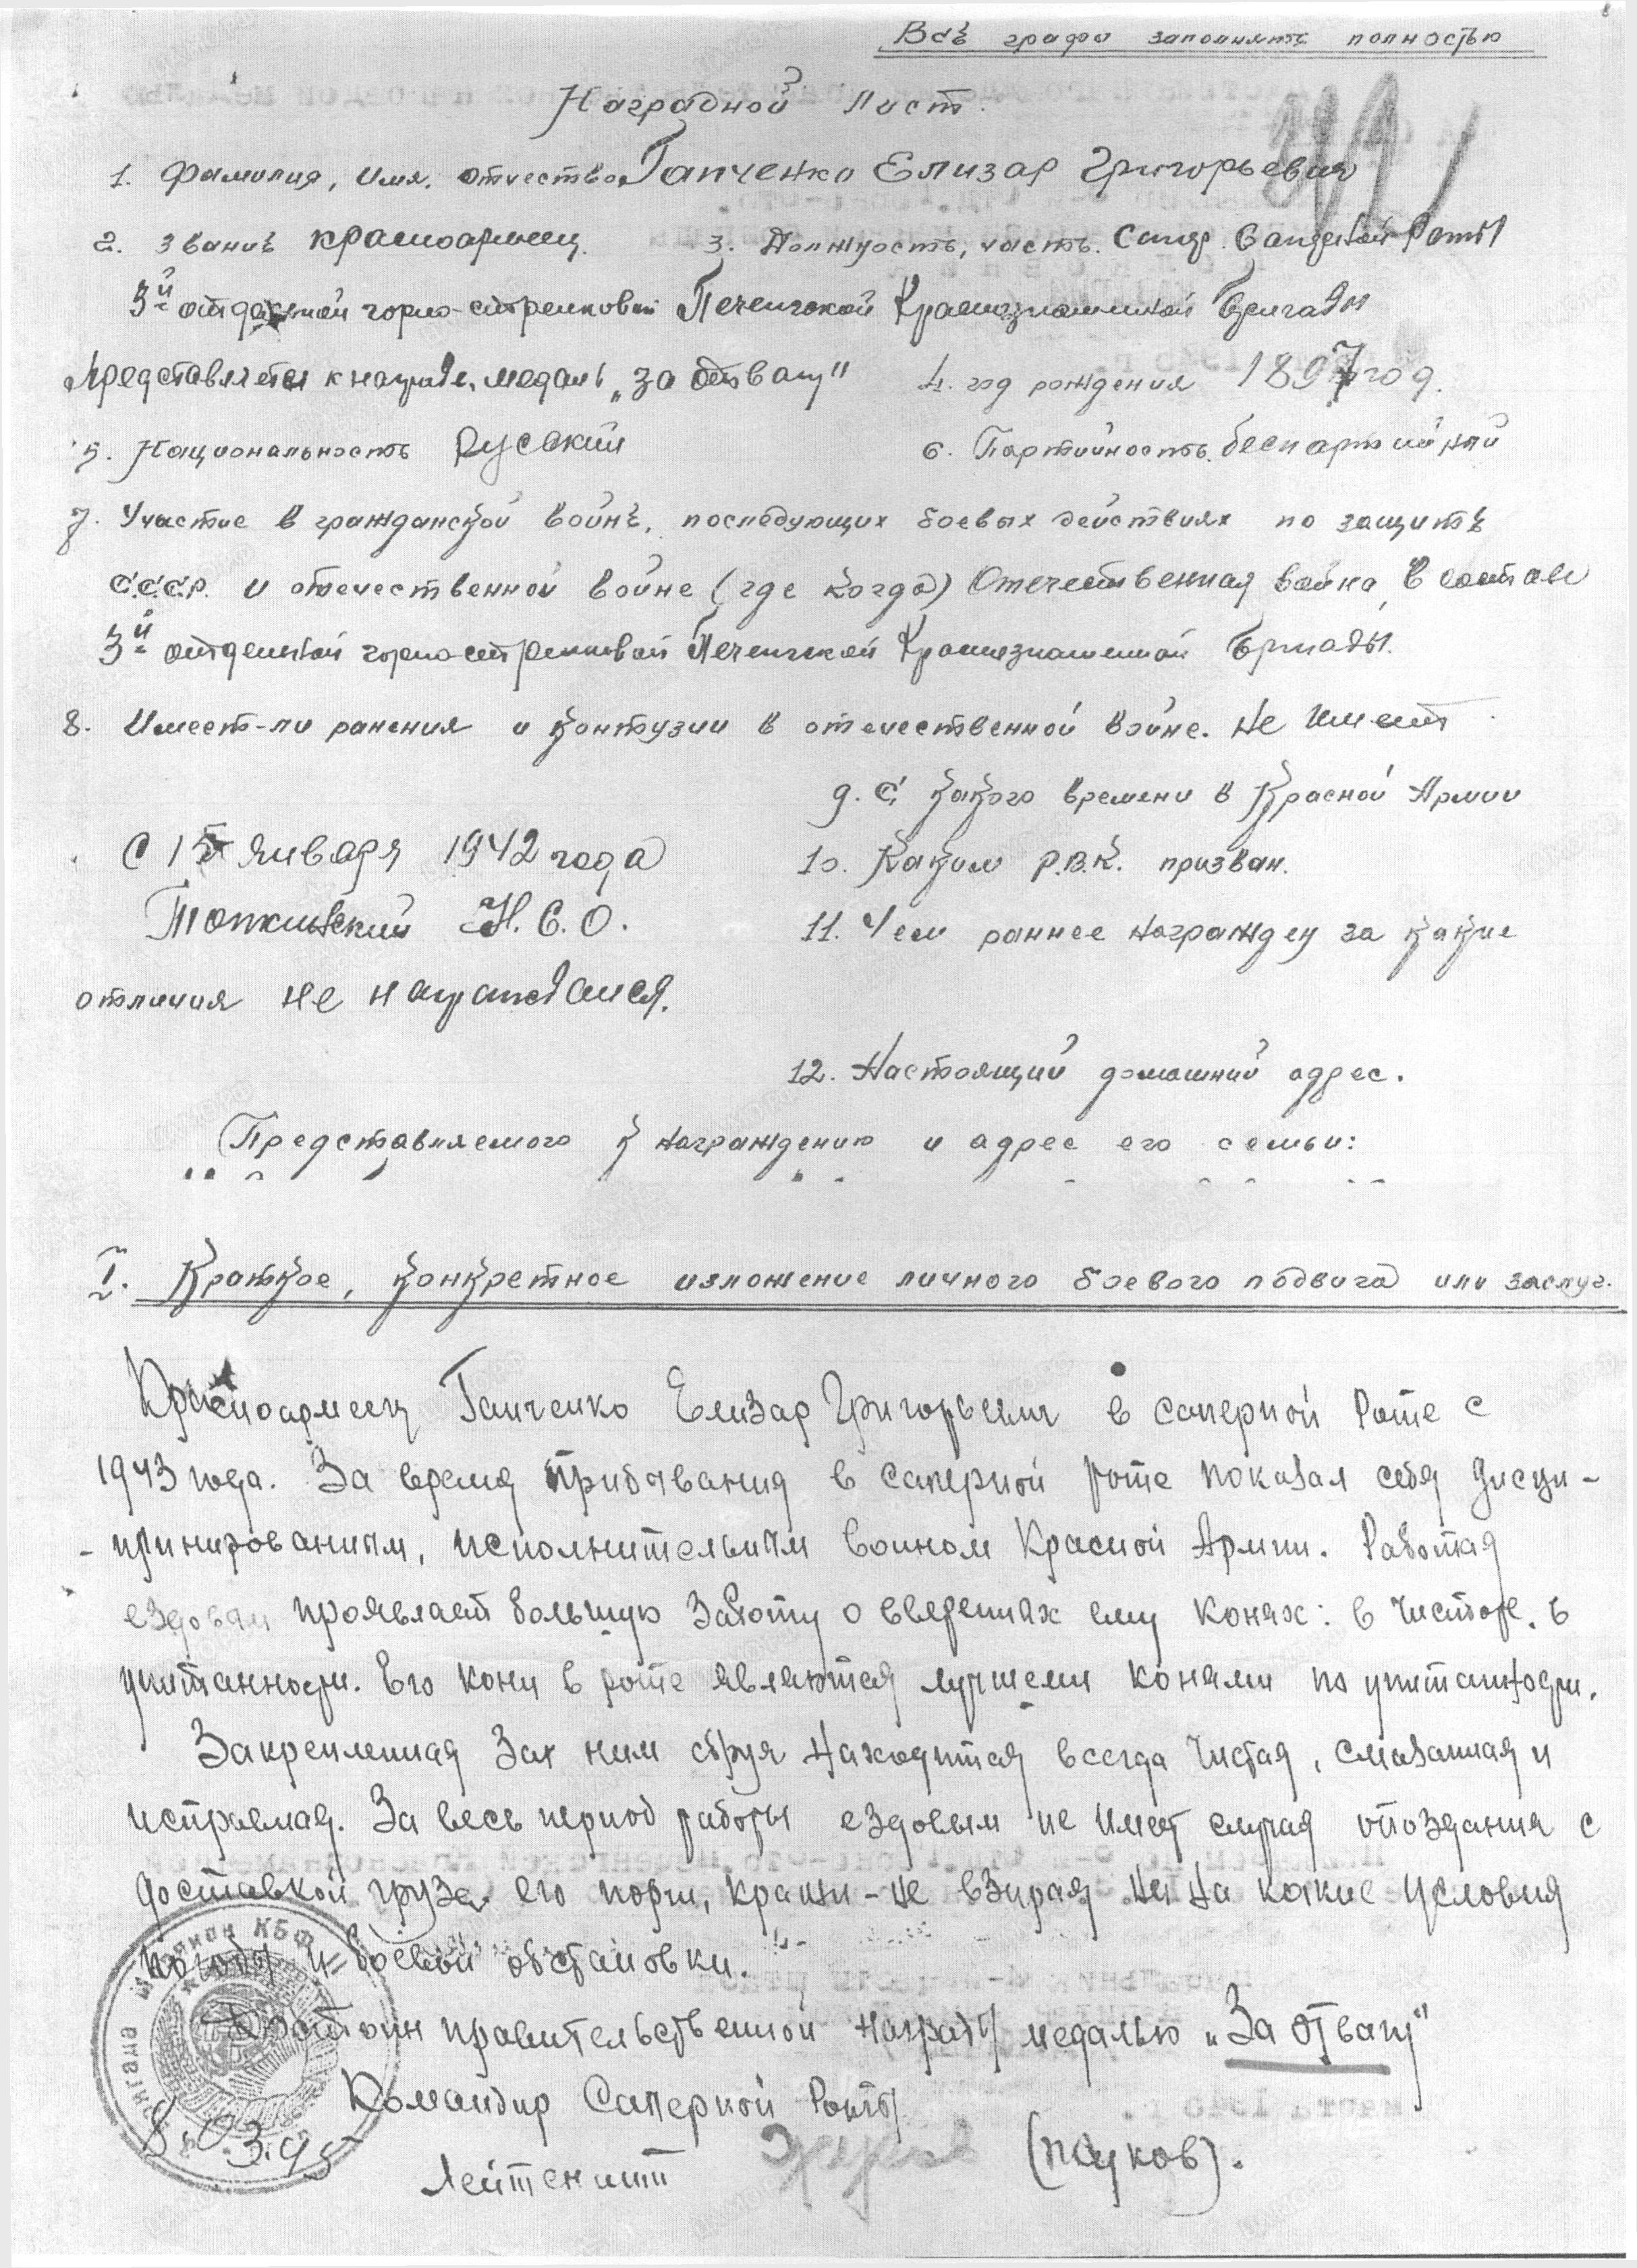 Всѣ графы заполнять полностью
Наградной лист.
1. Фамилия, Имя, отчество Гапченко Елизар Григорьевич
2. Званиѣ красноармеец. 3. Должность, часть. Сапер Саперной Роты
3й отдельной горно-стрелковой Печенгской Краснознаменной Бригады
Представляется к награде, медаль „за отвагу" 4. год рождения 1897 год.
5. Национальность Русский 6. Партийность. беспартийный
7. Участие в гражданской войнѣ, последующих боевых действиях по защитѣ
С.С.С.Р. и отечественной войне (где когда) Отечественная война, в составе
3й отдельной горно-стрелковой Печенгской Краснознаменной Бригады.
8. Имеет-ли ранения и контузии в отечественной войне. не имеет
9. С какого времени в Красной Армии
С 15 января 1942 года 10. Каким Р.В.К. призван.
Топкинский 11. Чем раннее награжден за какие
отличия не награждался.
12. Настоящий домашний адрес.
Представляемого к награждению и адрес его семьи:
I. Краткое, конкретное изложение личного боевого подвига или заслуг.
Красноармеец Гапченко Елизар Григорьевич в саперной Роте с
1943 года. За время прибывания в саперной роте показал себя дисци-
-плинированным, исполнительным воином Красной Армии. Работая
ездовым проявляет большую заботу о вверенных ему конях: в чистоте, в
упитанности. Его кони в роте являются лучшеми конями по упитанности.
Закрепленная за ним сбруя находится всегда чистая, смазанная и
исправная. За весь период работы ездовым не имеет случая опоздания с
доставкой груза его порчи, кражи-не взирая ни на какие условия
погоды и боевой обстановки.
Достоин правительственной награды медалью „За отвагу"
Командир Саперной Роты
Лейтенант (Пауков).
8.03.45